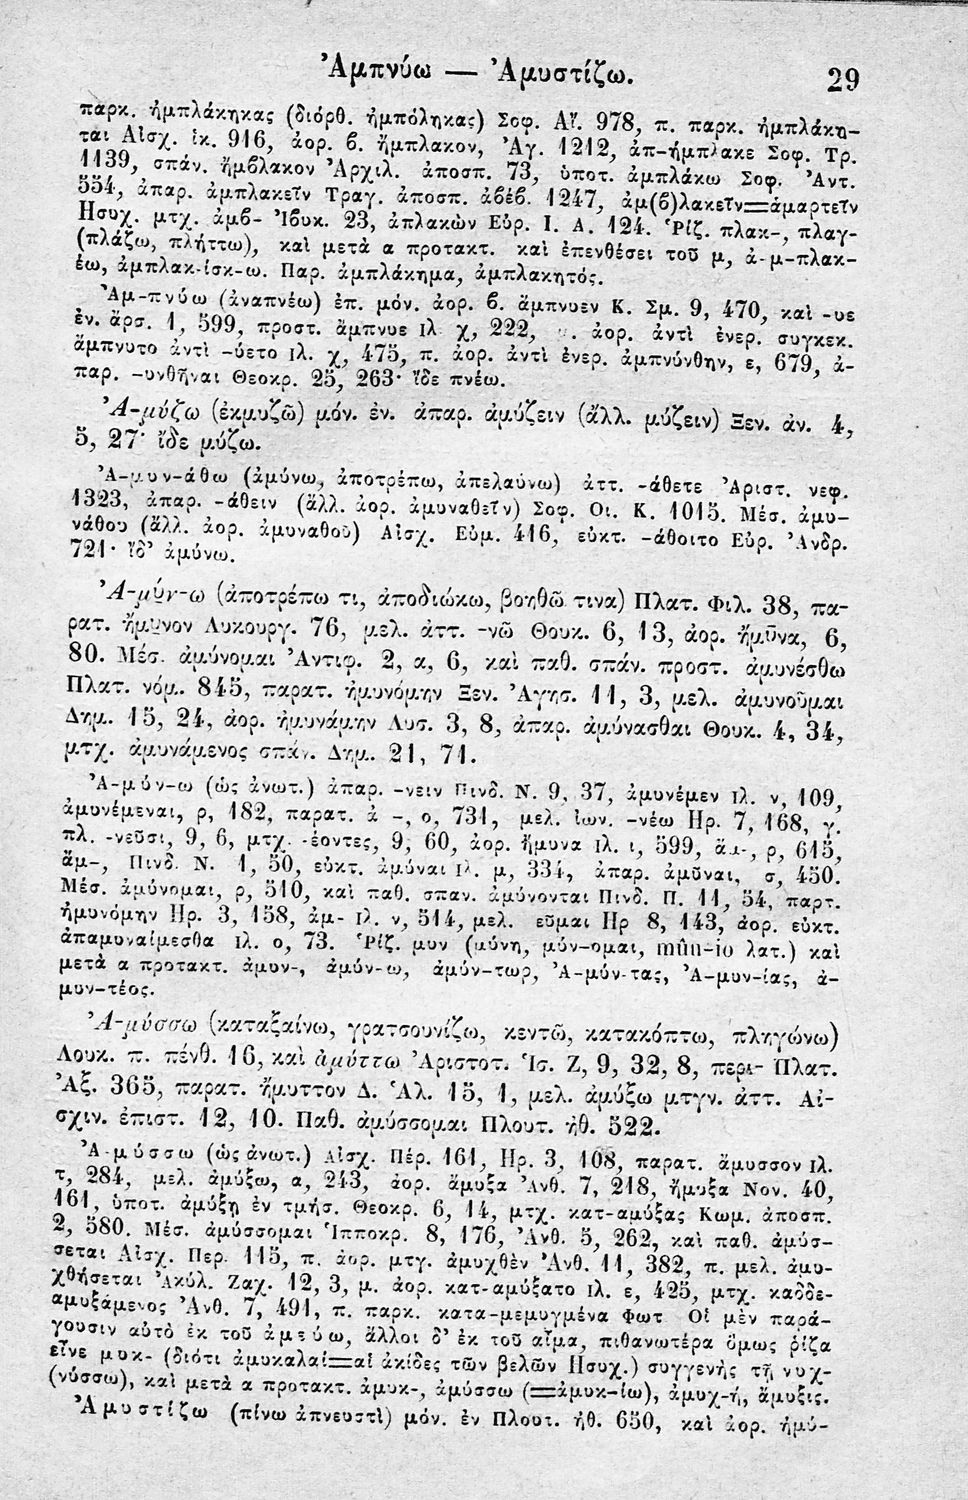 Ἀμπνύω — Ἀμυστίζω. 29
παρκ. ἠμπλάκηκας (διόρθ. ἠμπόληκας) Σοφ. Αἴ. 978, π. παρκ. ἠμπλάκη-
ται Αἰσχ. ἱκ. 916, ἀορ. β. ἤμπλακον, Ἀγ. 1212, ἀπ-ήμπλακε Σοφ. Τρ.
1139, σπάν. ἤμβλακον Ἀρχιλ. ἀποσπ. 73, ὑποτ. ἀμπλάκω Σοφ. Ἀντ.
554, ἀπαρ. ἀμπλακεῖν Τραγ. ἀποσπ. ἀβέβ. 1247, ἀμ(β)λακεῖν=ἁμαρτεῖν
Ἡσυχ. μτχ. ἀμβ- Ἰβυκ. 23, ἀπλακὼν Εὐρ. Ι. Α. 124. Ῥίζ. πλακ-, πλαγ-
(πλάζω, πλήττω), καὶ μετὰ α προτακτ. καὶ ἐπενθέσει τοῦ μ, ἀ-μ-πλακ-
έω, ἀμπλακ-ίσκ-ω. Παρ. ἀμπλάκημα, ἀμπλακητός.
Ἀμ-πνύω (ἀναπνέω) ἐπ. μόν. ἀορ. β. ἄμπνυεν Κ. Σμ. 9, 470, καὶ -υε
ἐν. ἄρσ. 1, 599, προστ. ἄμπνυε Ιλ χ, 222, . ἀορ. ἀντὶ ἐνερ. συγκεκ.
ἄμπνυτο ἀντὶ -ύετο Ιλ. χ, 475, π. ἀορ. ἀντὶ ἐνερ. ἀμπνύνθην, ε, 679, ἀ-
παρ. -υνθῆναι Θεοκρ. 25, 263· ἴδε πνέω.
Ἀ-μύζω (ἐκμυζῶ) μόν. ἐν. ἀπαρ. ἀμύζειν (ἄλλ. μύζειν) Ξεν. ἀν. 4,
5, 27· ἴδε μύζω.
Ἀ-μυν-άθω (ἀμύνω, ἀποτρέπω, ἀπελαύνω) ἀττ. -άθετε Ἀριστ. νεφ.
1323, ἀπαρ. -άθειν (ἄλλ. ἀορ. ἀμυναθεῖν) Σοφ. Οι. Κ. 1015. Μέσ. ἀμυ-
νάθου (ἄλλ. ἀορ. ἀμυναθοῦ) Αἰσχ. Εὐμ. 416, εὐκτ. -άθοιτο Εὐρ. Ἀνδρ.
721· ἴδ' ἀμύνω.
Ἀ-μύν-ω (ἀποτρέπω τι, ἀποδιώκω, βοηθῶ τινα) Πλατ. Φιλ. 38, πα-
ρατ. ἤμυνον Λυκουργ. 76, μελ. ἀττ. -νῶ Θουκ. 6, 13, ἀορ. ἤμῦνα, 6,
80. Μέσ. ἀμύνομαι Ἀντιφ. 2, α, 6, καὶ παθ. σπάν. προστ. ἀμυνέσθω
Πλατ. νόμ. 845, παρατ. ἠμυνόμην Ξεν. Ἀγησ. 11, 3, μελ. ἀμυνοῦμαι
Δημ. 15, 24, ἀορ. ἠμυνάμην Λυσ. 3, 8, ἀπαρ. ἀμύνασθαι Θουκ. 4, 34,
μτχ. ἀμυνάμενος σπάν. Δημ. 21, 71.
Ἀ-μύν-ω (ὡς ἀνωτ.) ἀπαρ. -νειν Πινδ. Ν. 9, 37, ἀμυνέμεν Ιλ. ν, 109,
ἀμυνέμεναι, ρ, 182, παρατ. ἀ -, ο, 731, μελ. ἰων. -νέω Ηρ. 7, 168, γ.
πλ. -νεῦσι, 9, 6, μτχ. -έοντες, 9, 60, ἀορ. ἤμυνα Ιλ. ι, 599, ἄμ-, ρ, 615,
ἄμ-, Πινδ. Ν. 1, 50, εὐκτ. ἀμύναι Ιλ. μ, 334, ἀπαρ. ἀμῦναι, σ, 450.
Μέσ. ἀμύνομαι, ρ, 510, καὶ παθ. σπαν. ἀμύνονται Πινδ. Π. 11, 54, παρτ.
ἠμυνόμην Ηρ. 3, 158, ἀμ- Ιλ. ν, 514, μελ. εῦμαι Ηρ 8, 143, ἀορ. εὐκτ.
ἀπαμυναίμεσθα Ιλ. ο, 73. Ῥίζ. μυν (μύνη, μύν-ομαι, mûn-io λατ.) καὶ
μετὰ α προτακτ. ἀμυν-, ἀμύν-ω, ἀμύν-τωρ, Ἀ-μύν-τας, Ἀ-μυν-ίας, ἀ-
μυν-τέος.
Ἀ-μύσσω (καταξαίνω, γρατσουνίζω, κεντῶ, κατακόπτω, πληγώνω)
Λουκ. π. πένθ. 16, καὶ ἀμύττω Ἀριστοτ. Ἱσ. Ζ, 9, 32, 8, περι- Πλατ.
Ἀξ. 365, παρατ. ἤμυττον Δ. Ἁλ. 15, 1, μελ. ἀμύξω μτγν. ἀττ. Αἰ-
σχιν. ἐπιστ. 12, 10. Παθ. ἀμύσσομαι Πλουτ. ἠθ. 522.
Ἀ-μύσσω (ὡς ἀνωτ.) Αἰσχ. Πέρ. 161, Ηρ. 3, 108, παρατ. ἄμυσσον Ιλ.
τ, 284, μελ. ἀμύξω, α, 243, ἀορ. ἄμυξα Ἀνθ. 7, 218, ἤμυξα Νον. 40,
161, ὑποτ. ἀμύξῃ ἐν τμήσ. Θεοκρ. 6, 14, μτχ. κατ-αμύξας Κωμ. ἀποσπ.
2, 580. Μέσ. ἀμύσσομαι Ἱπποκρ. 8, 176, Ἀνθ. 5, 262, καὶ παθ. ἀμύσ-
σεται Αἰσχ. Περ 115, π. ἀορ. μτγ. ἀμυχθὲν Ἀνθ. 11, 382, π. μελ. ἀμυ-
χθήσεται Ἀκύλ. Ζαχ. 12, 3, μ. ἀορ. κατ-αμύξατο Ιλ. ε, 425, μτχ. καδδε-
αμυξάμενος Ἀνθ. 7, 491, π. παρκ. κατα-μεμυγμένα Φωτ Οἱ μὲν παρά-
γουσιν αὐτὸ ἐκ τοῦ ἀμεύω, ἄλλοι δ' ἐκ τοῦ αἷμα, πιθανωτέρα ὅμως ῥίζα
εἶνε μυκ- (διότι ἀμυκαλαί=αἱ ἀκίδες τῶν βελῶν Ἡσυχ.) συγγενὴς τῇ νυχ-
(νύσσω), καὶ μετὰ α προτακτ. ἀμυκ-, ἀμύσσω (=ἀμυκ-ίω), ἀμυχ-ή, ἄμυξις.
Ἀμυστίζω (πίνω ἀπνευστὶ) μόν. ἐν Πλουτ. ἠθ. 650, καὶ ἀορ. ἠμύ-